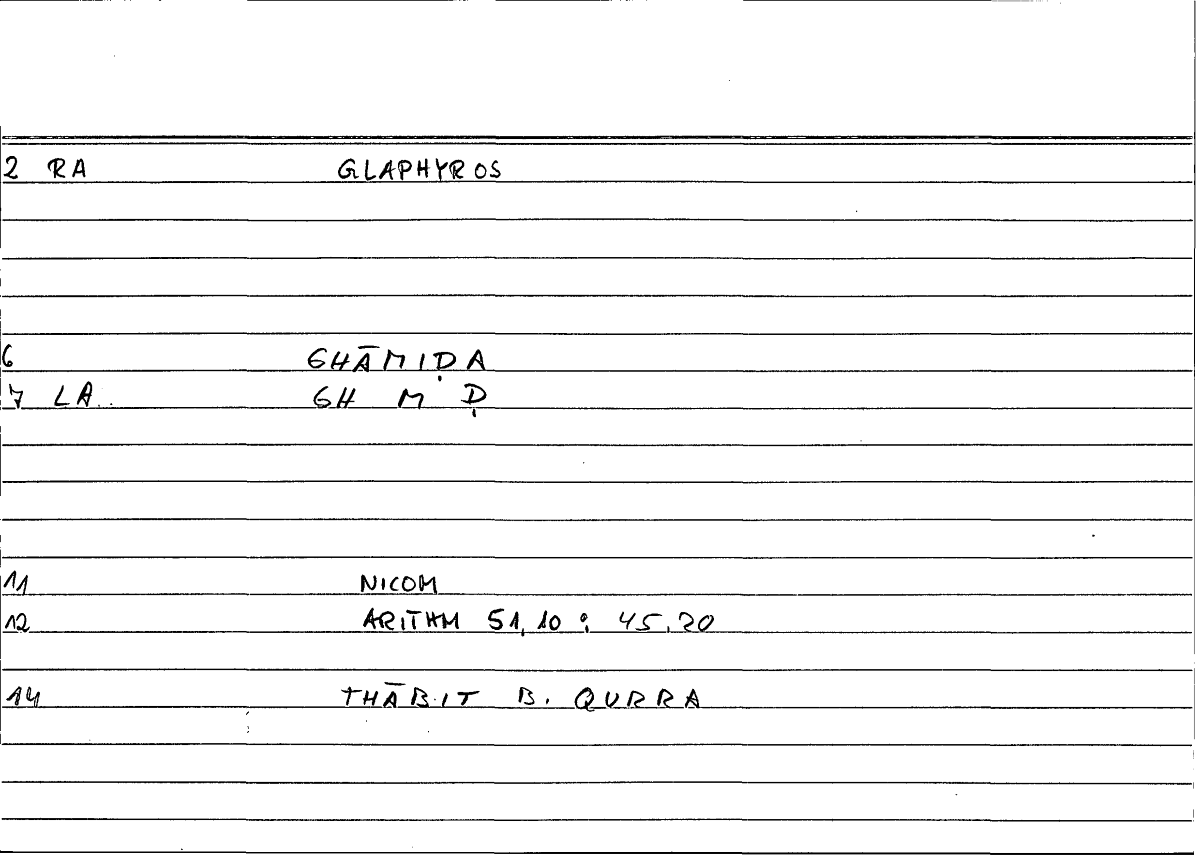 2 RA GLAPHYROS
6 GHĀMIḌA
7 LA GH M Ḍ
11 NICOM
12 ARITHM 51,10 : 45.20
14 THĀBIT B. QURRA